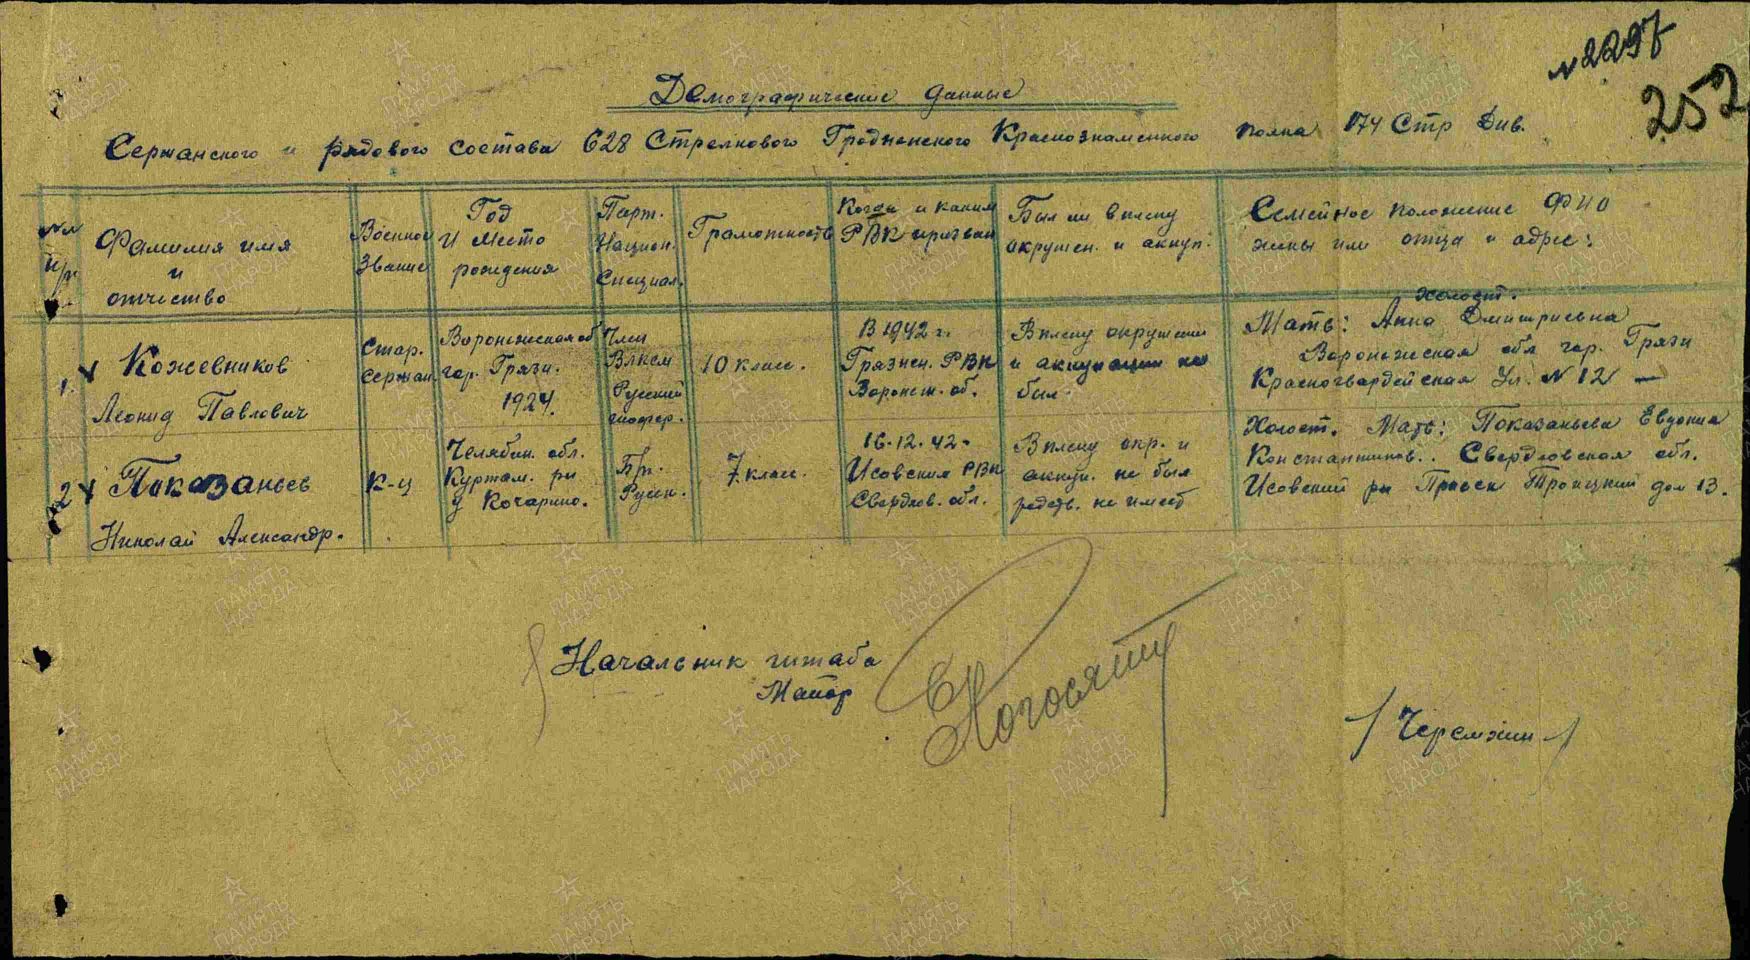 № 2297
252
Демографические данные
Сержанского и рядового состава 628 Стрелкового Гродненского Краснознаменного полка 174 Стр Див.
№№ п/п
Фамилия имя
и
отчество
Военное
Звание
Год
И Место
рождения
Парт.
Национ.
Специал.
Грамотность
Когда и каким
РВК призван
Был ли в плену
окружен. и оккуп.
Семейное положение ФИО
жены или отца и адрес:
1.
Кожевников
Леонид Павлович
Стар.
Сержан.
Воронежская об
гор. Грязи.
1924.
Член
Влксм
Русский
10 класс.
В 1942 г.
Грязнен. РВК
Воронеж. об.
В плену окружении
и оккупации не
был.
Холост.
Мать: Анна Дмитриевна
Воронежская обл гор. Грязи
Красногвардейская Ул. № 12 —
2
Показаньев
Николай Александр.
К-ц
Челябин. обл.
Куртам. рн
Б/п.
Русск.
7 класс.
16.12.42.
Исовским РВК
Свердлов. обл.
В плену окр. и
оккуп. не был
родств. не имеет
Холост. Мать: Показаньева Евдокия
Константинов.. Свердловская обл.
Исовский рн Прииск Троицкий дом 13.
Начальник штаба
Майор
/Черемхин/
ПАМЯТЬ
НАРОДА